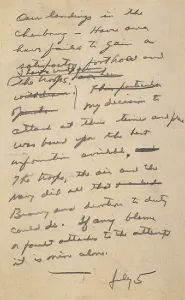 Our landings in the
Cherbourg - Havre area
have failed to gain a
satisfactory foothold and
I have withdrawn
the troops. This particular
operation My decision to
attack at this time and place
was based upon the best
information available.
The troops, the air and the
Navy did all that
Bravery and devotion to duty
could do. If any blame
or fault attaches to the attempt
it is mine alone.
July 5